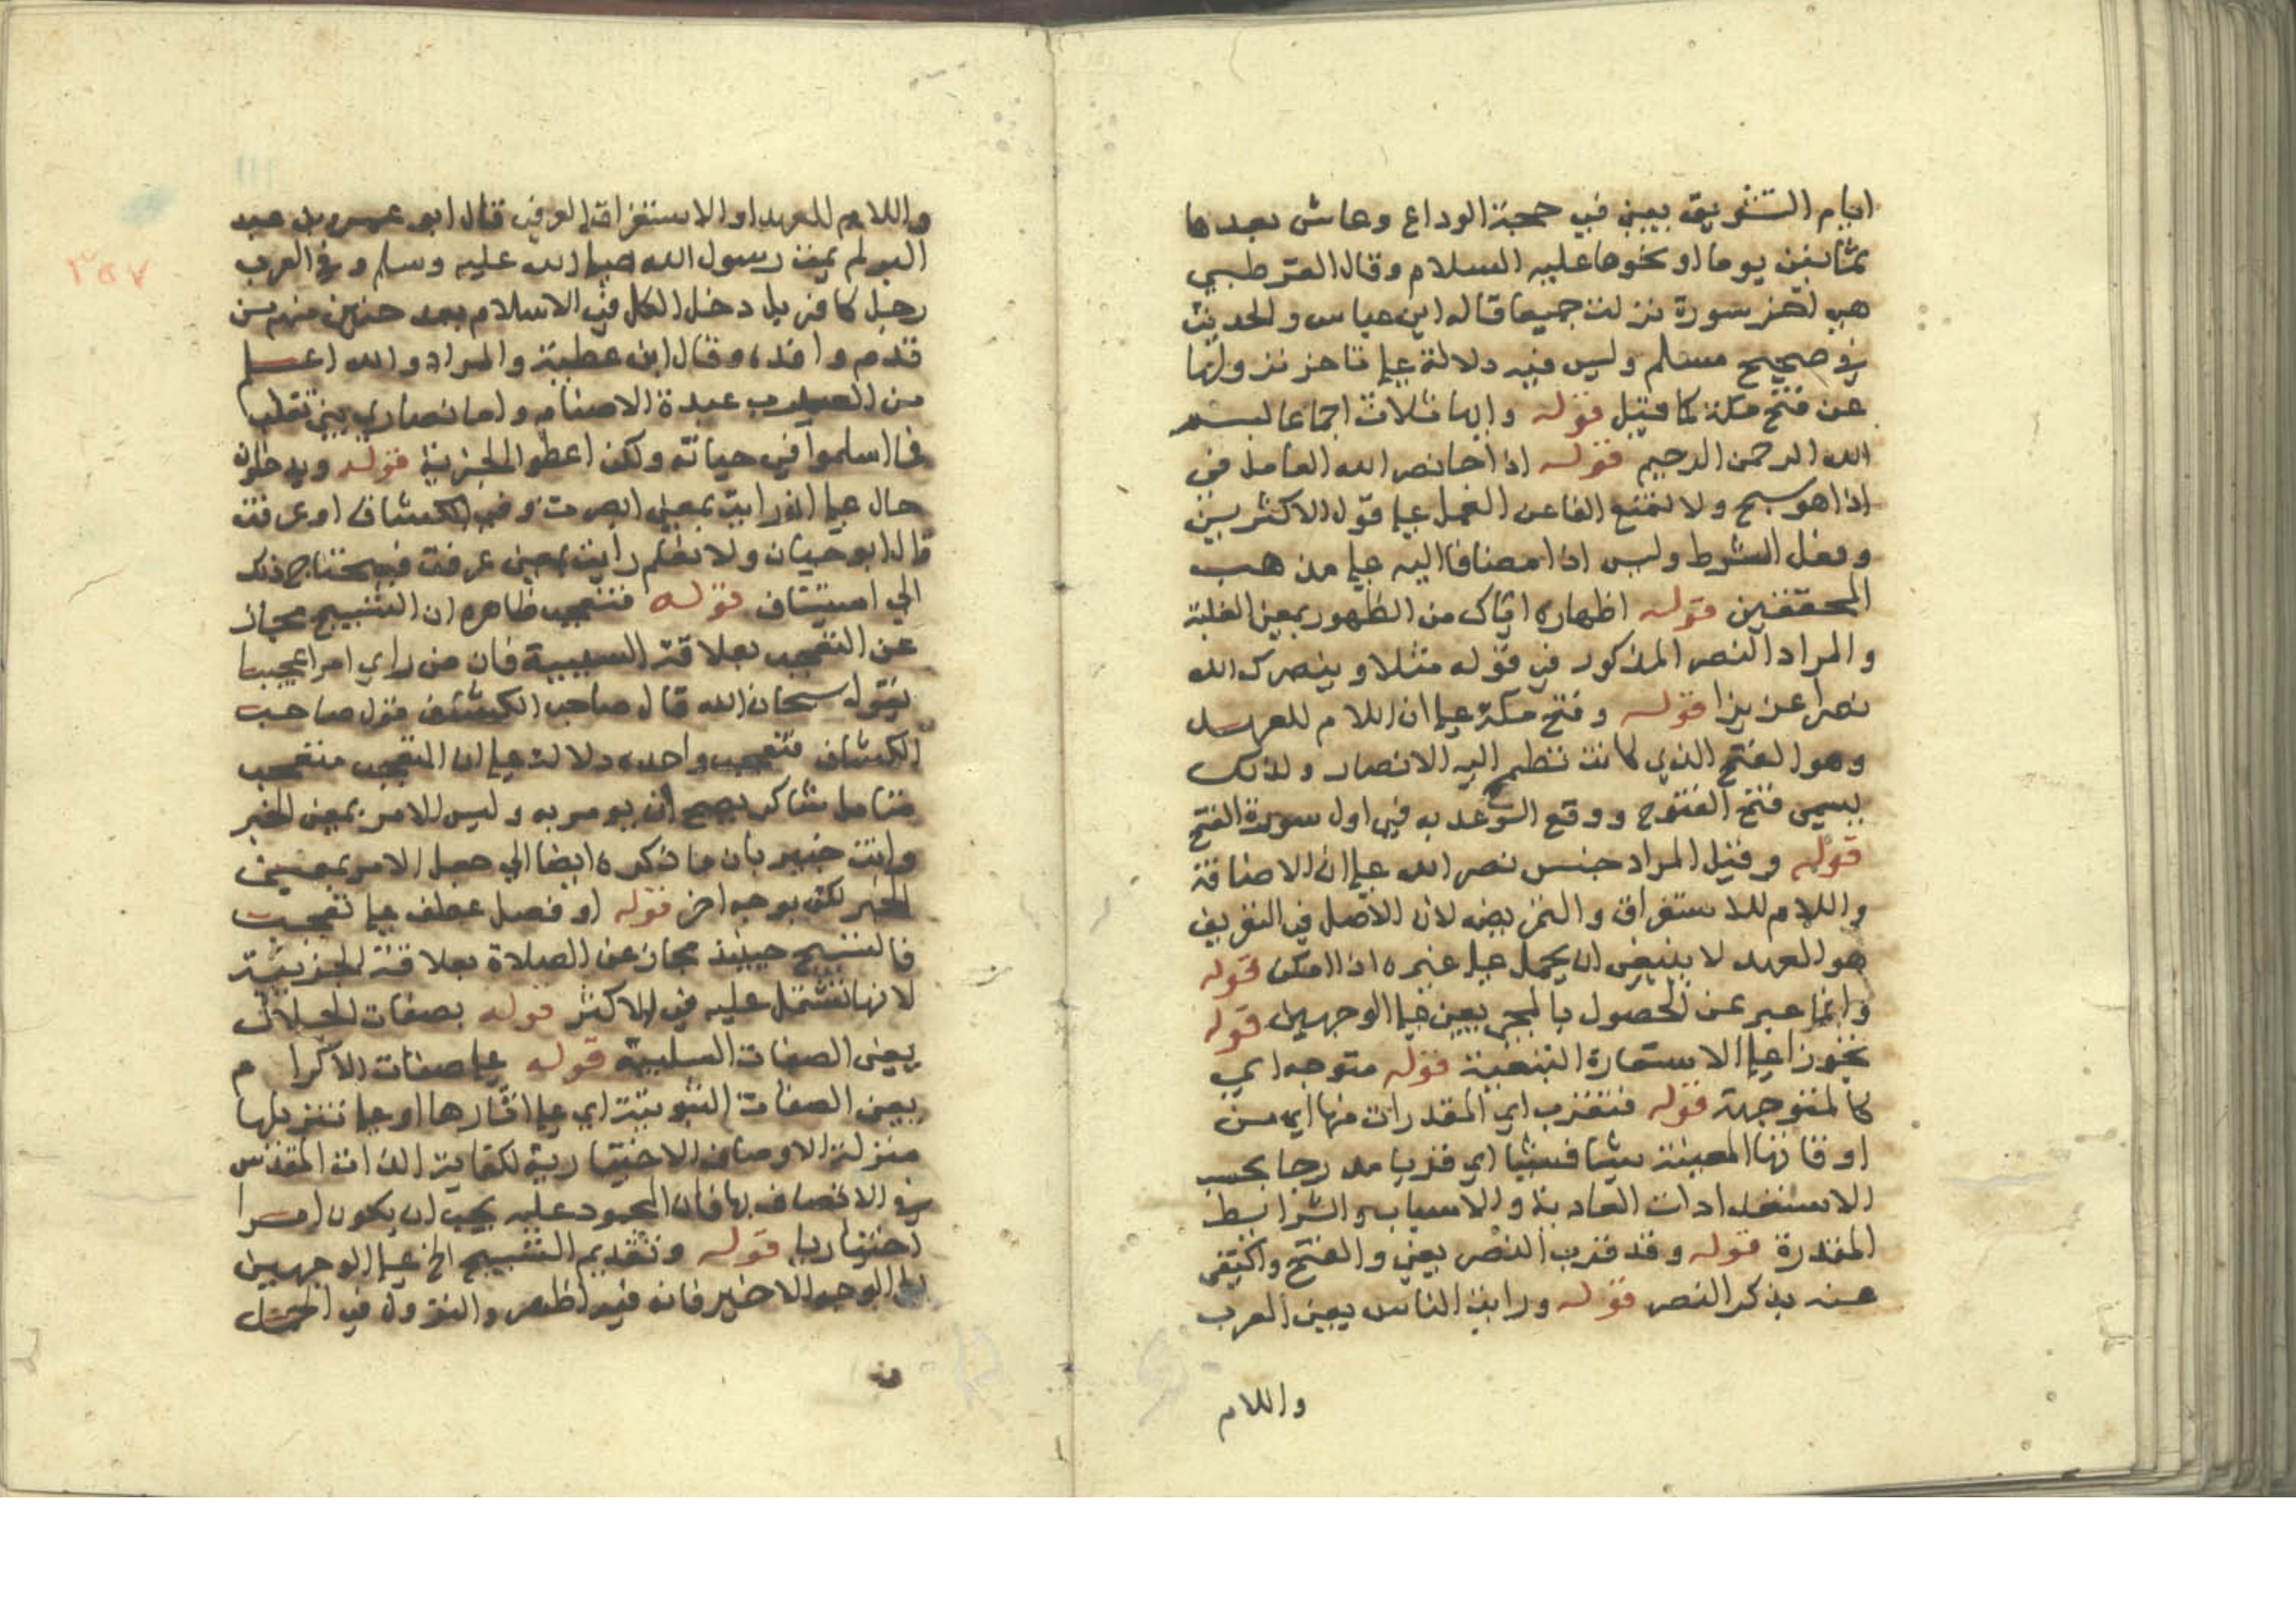 ايام التشريق بمني في حجة الوداع وعاش بعدها
بثمانين يوما او نحوها عليه السلام وقال القرطبي
هي اخر سورة نزلت جميعا قاله ابن عباس والحديث
في صحيح مسلم وليس فيه دلالة علي تاخر نزولها
عن فتح مكة كما قيل قوله وايها ثلاث اجماعا بسم
الله الرحمن الرحيم قوله اذا جا نصر الله العامل في
اذا هو سبح ولا تمنع الفا عن العمل علي قول الاكثريين
وفعل الشرط وليس اذا مضافا اليه علي مذهب
المحققين قوله اظهاره اياك من الظهور بمعني الغلبة
والمراد النصر المذكور في قوله مثلا وينصرك الله
نصرا عزيزا قوله وفتح مكة علي ان اللام للعهد
وهو الفتح الذي كانت تطمح اليه الانصار ولذلك
يسمي فتح الفتوح ووقع الوعد به في اول سورة الفتح
قوله وقيل المراد جنس نصر الله علي ان الاضافة
واللام للاستغراق والتمريض لان الاصل في التعريف
هو العهد لا ينبغي ان يحمل علي غيره اذا امكن قوله
وانما عبر عن الحصول بالمجي يعني علي الوجهين قوله
تجوزا علي الاستعارة التبعية قوله متوجه اي
كالمتوجهة قوله فتقرب اي المقدرات منها اي من
اوقاتها المعينة شيا فشيا اي قربا مدرجا بحسب
الاستعدادات العادية والاسباب والشرايط
المقدرة قوله وقد قرب النصر يعني والفتح واكتفي
عنه بذكر النصر قوله ورايت الناس يعني العرب
واللام
واللام للعهد او الاستغراق العرفي قال ابو عمرو بن عبد
البر لم يمت رسول الله صلي الله عليه وسلم وفي العرب
رجل كافر بل دخل الكل في الاسلام بعد حنين منهم من
قدم وافده وقال ابن عطية والمراد والله اعلم
من العرب عبدة الاصنام واما نصاري بني تغلب
فما اسلموا في حياته ولكن اعطوا الجزية قوله ويدخلون
حال علي ان رايت بمعني ابصرت وفي الكشاف او عرفت
قال ابو حيان ولا نعلم رايت بمعني عرفت فيحتاج ذلك
الي استيناف قوله فتعجب ظاهره ان التسبيح مجاز
عن التعجب بعلاقة السببية فان من راي امرا عجيبا
يقول سبحان الله قال صاحب الكشف قول صاحب
الكشاف فتعجب واحمده دلالة علي ان المتعجب متعجب
متامل شاكر يصح ان يومر به وليس الامر بمعني الخبر
وانت خبير بان ما ذكره ايضا الي جعل الامر بمعني
الخبر لكن بوجه اخر قوله او فصل عطف علي تعجب
فالتسبيح حينيذ مجاز عن الصلاة بعلاقة الجزيية
لانها تشتمل عليه في الاكثر قوله بصفات الجلال
يعني الصفات السلبية قوله علي صفات الاكرام
يعني الصفات الثبوتية اي علي اثارها او علي تنزيلها
منزلة الاوصاف الاختيارية لكفاية الذات المقدس
في الاتصاف بها فان المحمود عليه يجب ان يكون امرا
اختياريا قوله وتقديم التسبيح الخ علي الوجهين
الوجه الاخير فانه فيه اظهر والنزول في الحمل